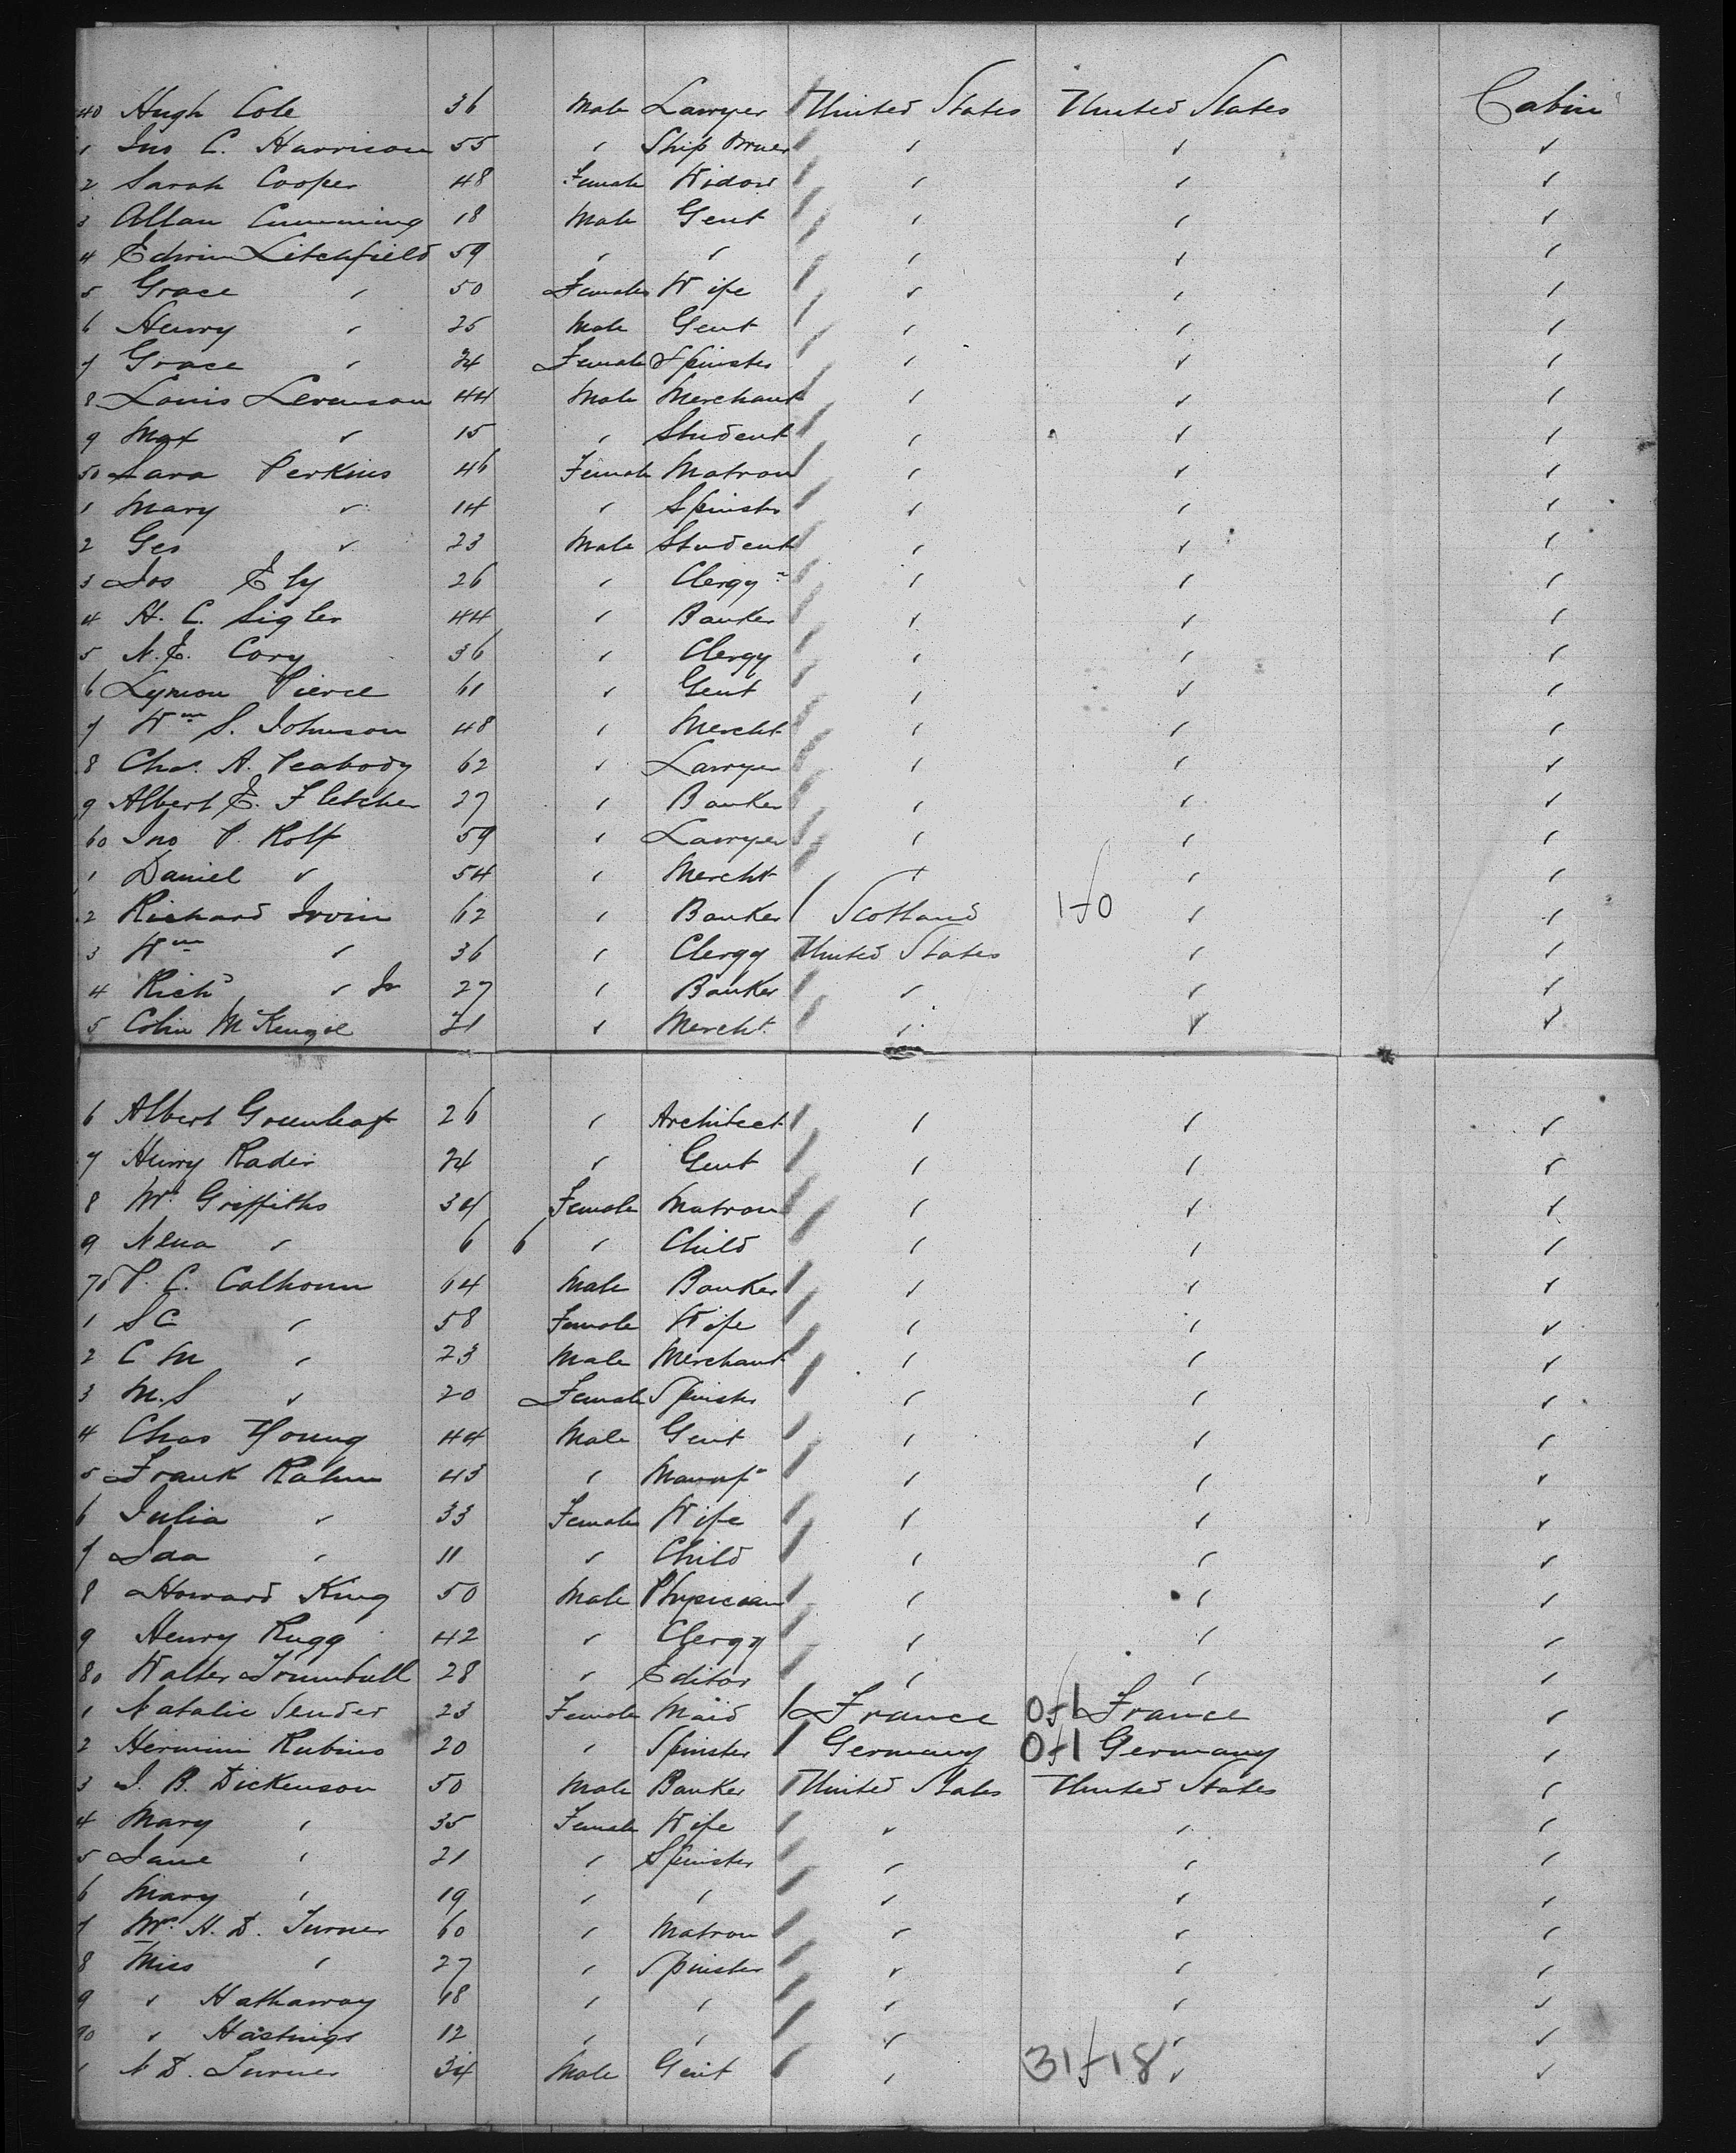 40 Hugh Cole 36 Male Lawyer United States United States Cabin
1 Jno C. Harrison 55 " Ship Owner " " "
2 Sarah Cooper 48 Female Widow " " "
3 Allan Cumming 18 Male Gent " " "
4 Edwin Litchfield 59 " " " " "
5 Grace " 50 Female Wife " " "
6 Henry " 25 Male Gent " " "
7 Grace " 24 Female Spinster " " "
8 Louis Levenson 44 Male Merchant " " "
9 Max " 15 " Student " " "
50 Sara Perkins 46 Female Matron " " "
1 Mary " 14 " Spinster " " "
2 Geo " 23 Male Student " " "
3 Jos Ely 26 " Clergyn " " "
4 H. C. Sigler 44 " Banker " " "
5 N. E. Cory 36 " Clergy " " "
6 Lymon Pierce 61 " Gent " " "
7 Wm S. Johnson 48 " Mercht " " "
8 Chas. A. Peabody 62 " Lawyer " " "
9 Albert E. Fletcher 27 " Banker " " "
60 Jno P. Rolf 59 " Lawyer " " "
1 Daniel " 54 " Mercht " " "
2 Richard Irvin 62 " Banker Scotland 1-0 " "
3 Wm " 36 " Clergy United States " "
4 Richd " Jr 27 " Banker " " "
5 Colin McKenzie 21 " Mercht " " "
6 Albert Greenleaf 26 " Architect " " "
7 Henry Rader 24 " Gent " " "
8 Mrs Griffiths 34 Female Matron " " "
9 Nena " 6 6 " Child " " "
70 P. C. Calhoun 64 Male Banker " " "
1 S C " 58 Female Wife " " "
2 C M " 23 Male Merchant " " "
3 M. S " 20 Female Spinster " " "
4 Chas Young 44 Male Gent " " "
5 Frank Rahm 43 " Manufr " " "
6 Julia " 33 Female Wife " " "
7 Ida " 11 " Child " " "
8 Howard King 50 Male Physician " " "
9 Henry Rugg 42 " Clergy " " "
80 Walter Trumbull 28 " Editor " " "
1 Natalie Sender 23 Female Maid France 0-1 France "
2 Hermini Rubino 20 " Spinster Germany 0-1 Germany "
3 J. B. Dickenson 50 Male Banker United States United States "
4 Mary " 35 Female Wife " " "
5 Jane " 21 " Spinster " " "
6 Mary " 19 " " " " "
7 Mrs. H. D. Turner 60 " Matron " " "
8 Miss " 27 " Spinster " " "
9 " Hathaway 18 " " " " "
90 " Hastings 12 " " " " "
1 N D. Turner 34 Male Gent " 31-18 " "